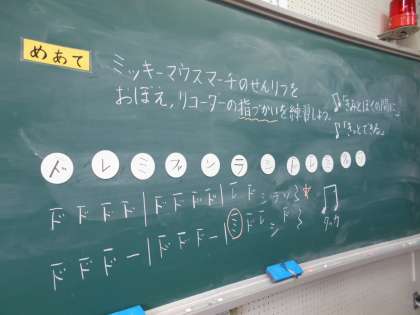 めあて
ミッキーマウスマーチのせんりつを
おぼえ,リコーダーの指づかいを練習しよう。
♪「きみとぼくの間に」
♪「きっとできる」
ド レ ミ ファ ソ ラ シ ド レ ミ
ド ド ド ド | ド ド ド ド | レ ド シ ラ ソ
ド ド ド ー | ド ド ド ー | ミ ド レ シ ド
タッタ